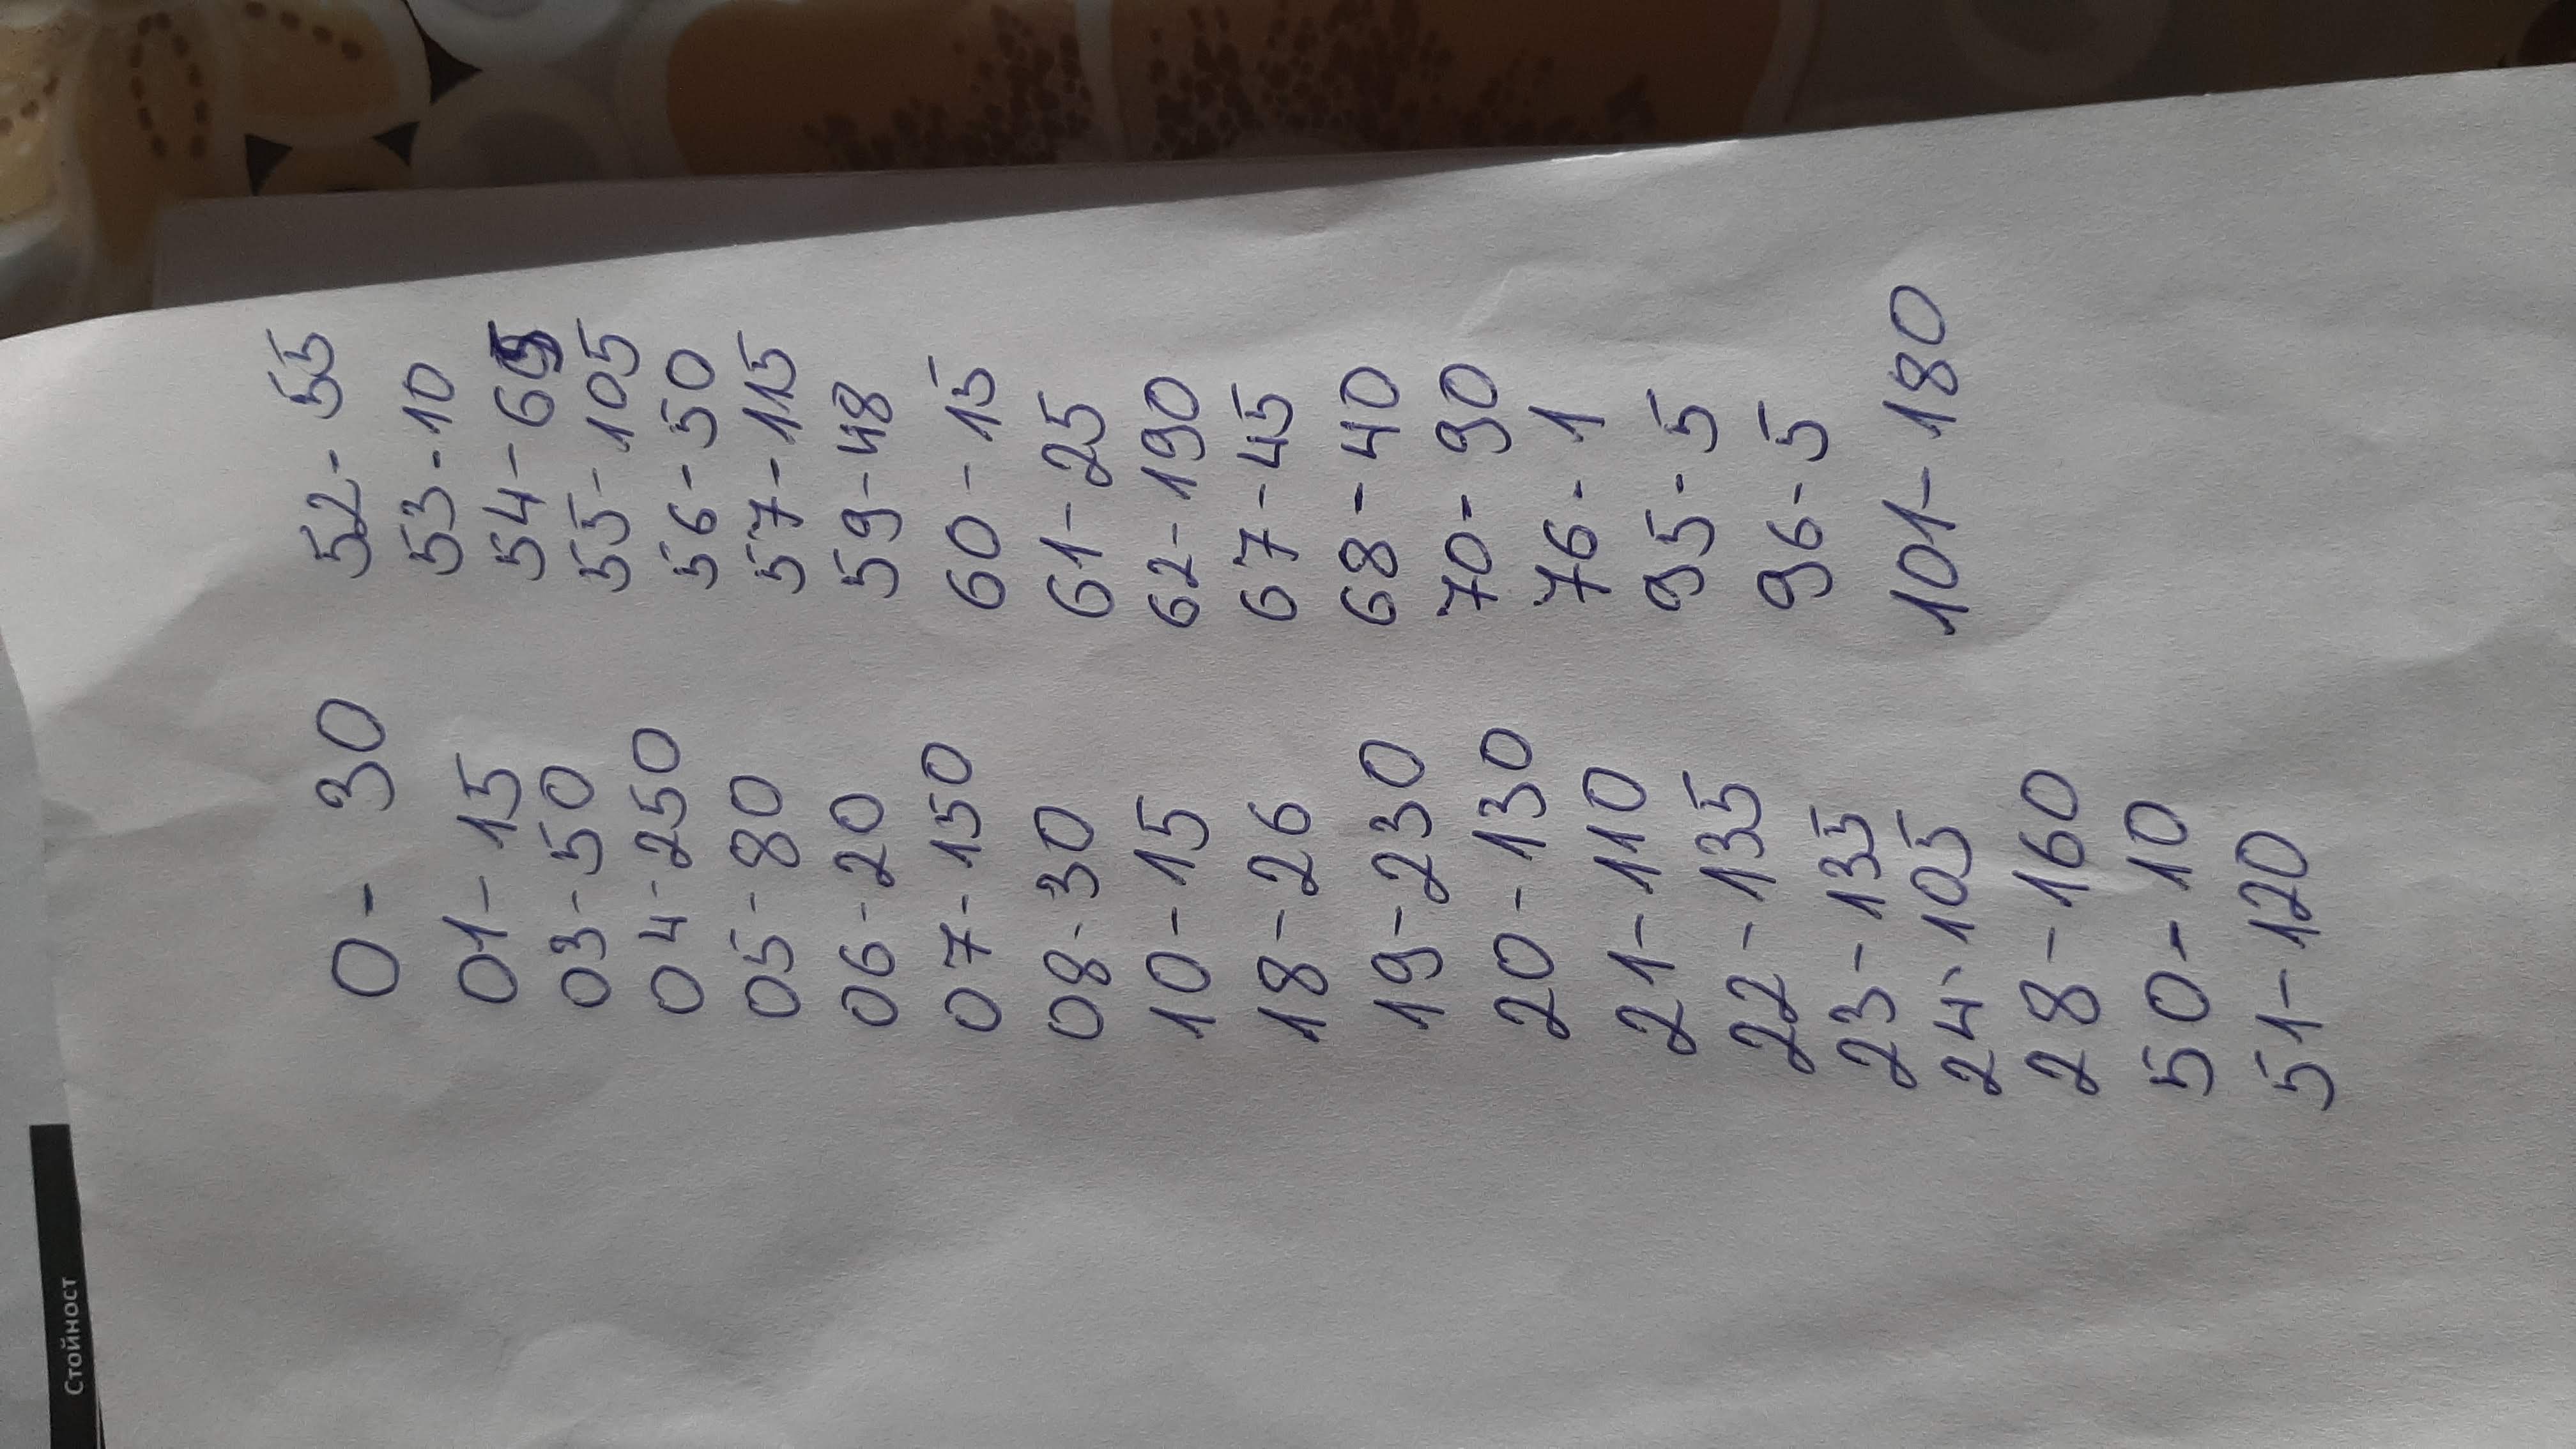 0 - 30
01 - 15
03 - 50
04 - 250
05 - 80
06 - 20
07 - 150
08 - 30
10 - 15
18 - 26
19 - 230
20 - 130
21 - 110
22 - 135
23 - 135
24 - 105
28 - 160
50 - 10
51 - 120
52 - 55
53 - 10
54 - 65
55 - 105
56 - 50
57 - 115
59 - 48
60 - 15
61 - 25
62 - 190
67 - 45
68 - 40
70 - 90
76 - 1
95 - 5
96 - 5
101 - 180
Стойност